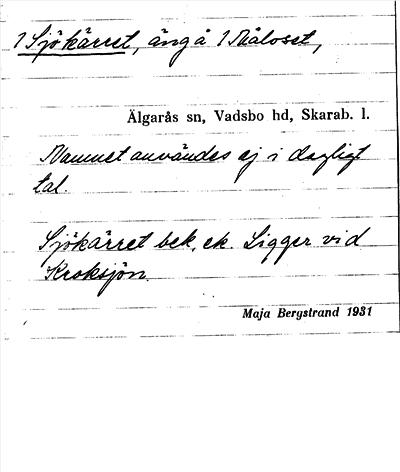 1 Sjökärret, äng å 1 Nåloset,
Älgarås sn, Vadsbo hd, Skarab. l.
Namnet användes ej i dagligt
tal.
Sjökärret bek. ek. Ligger vid
Kroksjön.
Maja Bergstrand 1931